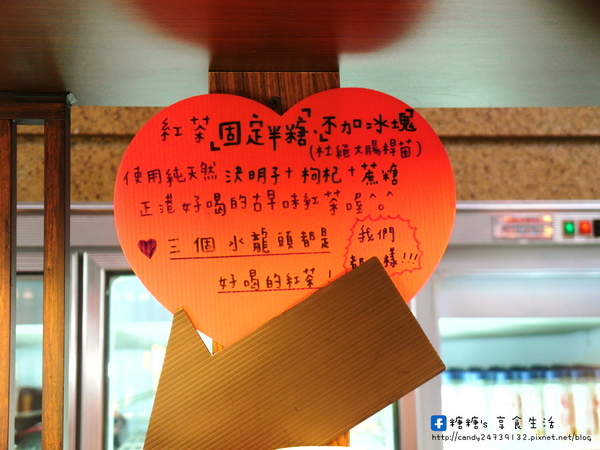 紅茶「固定半糖、不加冰塊」
(杜絕大腸桿菌)
使用純天然 決明子+枸杞+蔗糖
正港好喝的古早味紅茶喔^o^
三個水龍頭都是
好喝的紅茶!
我們
都 樣!!!
糖糖's 享食生活
http://candy24739132.pixnet.net/blog